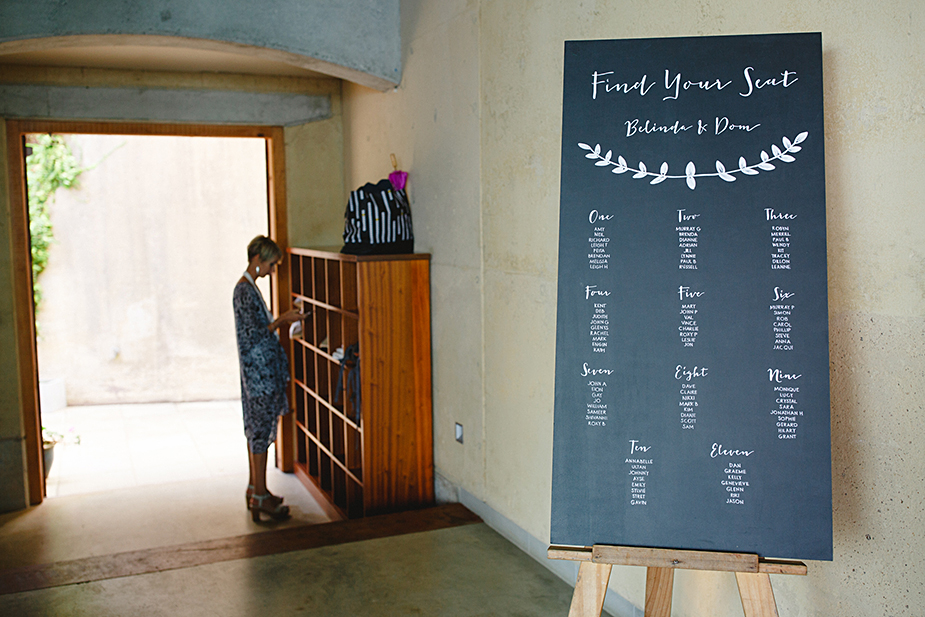 Find Your Seat
Belinda & Dom
One
AMY
NEIL
RICHARD
LEIGH T
PETA
BRENDAN
MELISSA
LEIGH H
Two
MURRAY G
BRENDA
DIANNE
ADRIAN
JILL
LYNNE
PAUL B
RUSSELL
Three
ROBYN
MERRILL
PAUL B
WENDY
KIT
TRACEY
DILLON
LEANNE
Four
KENT
DEB
JUDITH
JOHN G
GLENYS
RACHEL
MARK
ENGIN
KATH
Five
MARY
JOHN P
VAL
VINCE
CHARLIE
ROXY P
LESLIE
JON
Six
MURRAY P
SIMON
ROB
CAROL
PHILLIP
STEVE
ANNA
JACQUI
Seven
JOHN A
TION
GAY
JO
WILLIAM
SAMEER
SHIVANNI
ROXY B
Eight
DAVE
CLAIRE
NIKKI
MARK B
KIM
DIANE
SCOTT
SAM
Nine
MONIQUE
LUCY
CRYSTAL
SARA
JONATHAN H
SOPHIE
GERARD
HILARY
GRANT
Ten
ANNABELLE
JOHNNY
AYSE
EMILY
SYLVIE
STREET
GAVIN
Eleven
DAN
GRAEME
KELLY
GENEVIEVE
GLENN
RIKI
JASON